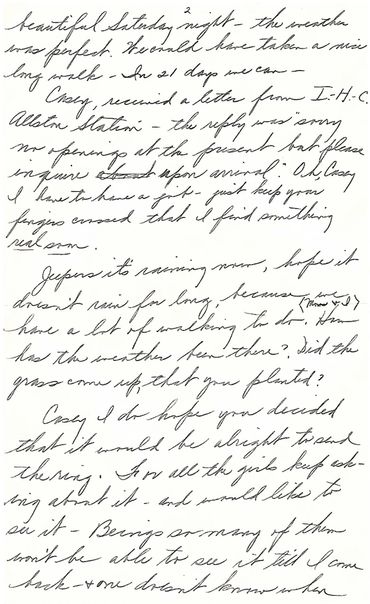 2
beautiful Saturday night - the weather
was perfect. We could have taken a nice
long walk - In 21 days we can -
Casey, received a letter from I-H-C.
Allston Station - the reply was "sorry
no openings at the present but please
inquire about upon arrival." Oh, Casey
I have to have a job - just keep your
fingers crossed that I find something
real soon.
Jeepers it's raining now, hope it
doesn't rain for long, because we
(Mom & I)
have a lot of walking to do. How
has the weather been there? Did the
grass come up, that you planted?
Casey I do hope you decided
that it would be alright to send
the ring. For all the girls keep ask-
ing about it - and would like to
see it - Beings so many of them
won't be able to see it till I come
back - & one doesn't know when